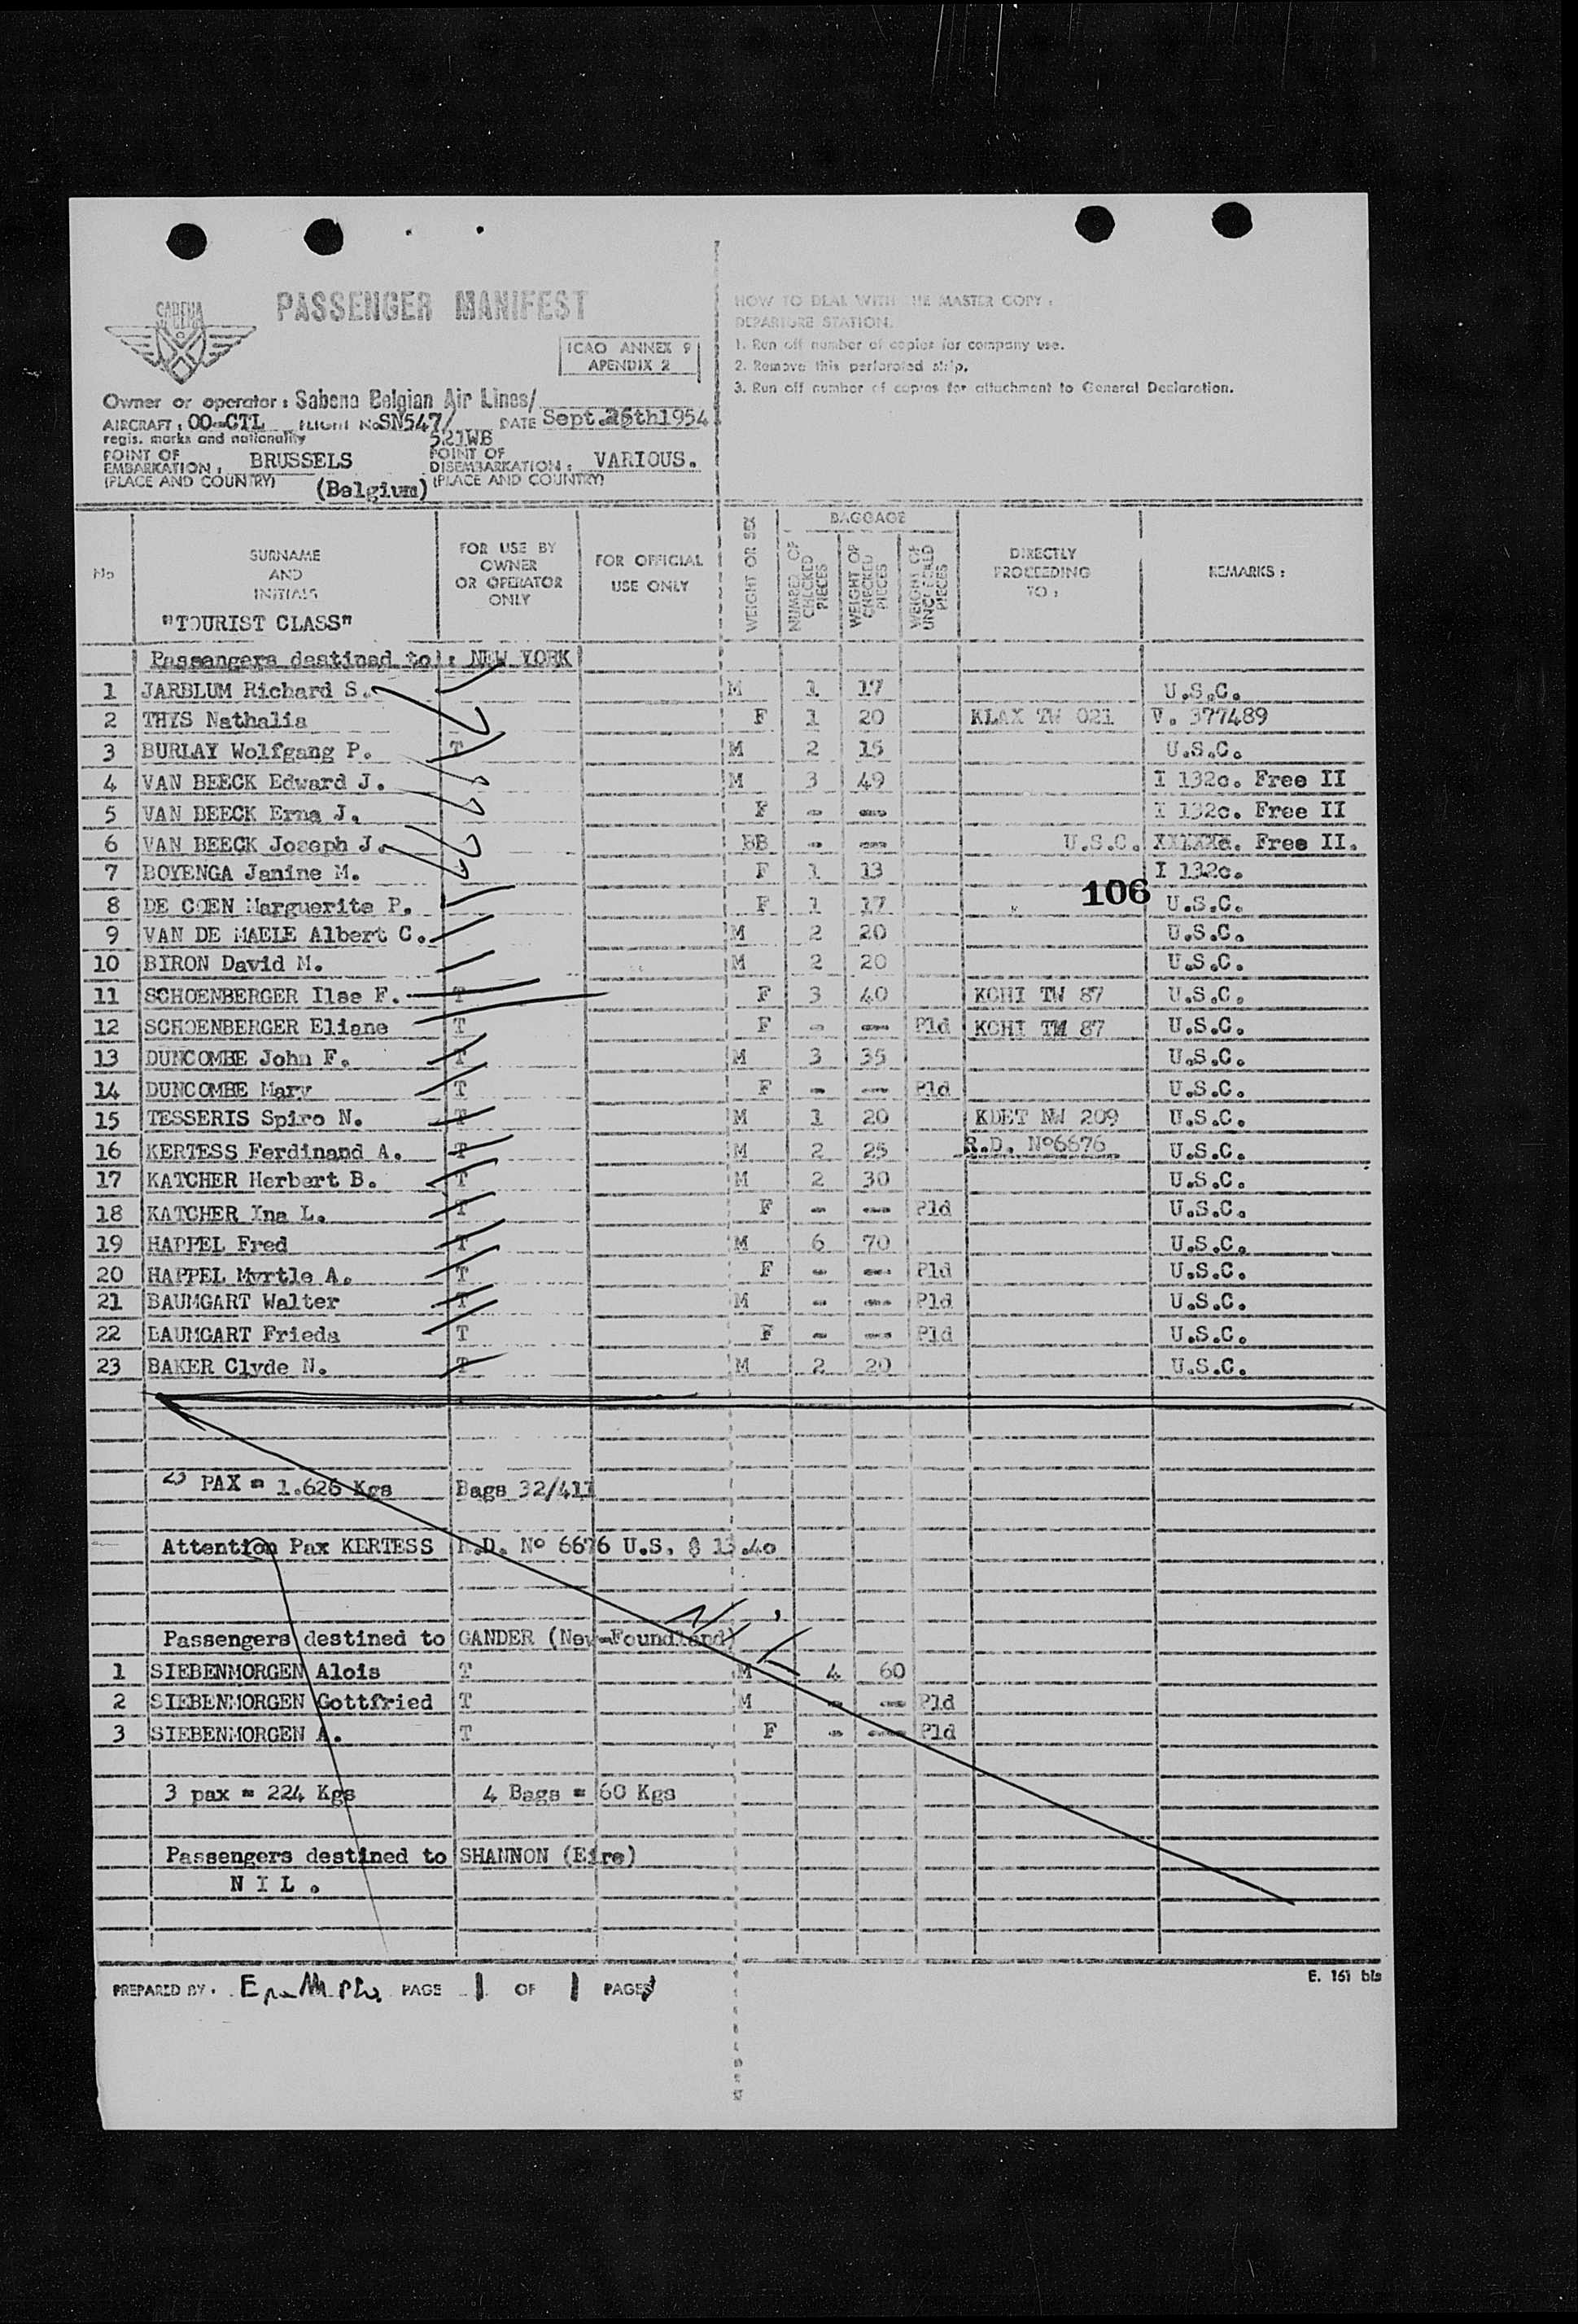 SABENA
PASSENGER MANIFEST
ICAO ANNEX 9
APENDIX 2
Owner or operator : Sabena Belgian Air Lines/
AIRCRAFT : OO-CTL FLIGHT No SN547/ DATE Sept. 25th1954
regis. marks and nationality 521WB
POINT OF EMBARKATION : BRUSSELS POINT OF DISEMBARKATION : VARIOUS.
(PLACE AND COUNTRY) (Belgium) (PLACE AND COUNTRY)
HOW TO DEAL WITH THE MASTER COPY :
DEPARTURE STATION.
1. Run off number of copies for company use.
2. Remove this perforated strip.
3. Run off number of copies for attachment to General Declaration.
No SURNAME AND INITIALS FOR USE BY OWNER OR OPERATOR ONLY FOR OFFICIAL USE ONLY WEIGHT OR SEX BAGGAGE NUMBER OF CHECKED PIECES WEIGHT OF CHECKED PIECES WEIGHT OF UNCHECKED PIECES DIRECTLY PROCEEDING TO : REMARKS :
"TOURIST CLASS"
Passengers destined to : NEW YORK
1 JARBLUM Richard S. M 1 17 U.S.C.
2 THYS Nathalia F 1 20 KLAX TW 021 V. 377489
3 BURLAY Wolfgang P. T M 2 15 U.S.C.
4 VAN BEECK Edward J. M 3 49 I 132c. Free II
5 VAN BEECK Erna J. F - -- I 132c. Free II
6 VAN BEECK Joseph J. BB - -- U.S.C. XXXXXc. Free II.
7 BOYENGA Janine M. F 1 13 I 132c.
106
8 DE COEN Marguerite P. F 1 17 U.S.C.
9 VAN DE MAELE Albert C. M 2 20 U.S.C.
10 BIRON David M. M 2 20 U.S.C.
11 SCHOENBERGER Ilse F. T F 3 40 KCHI TW 87 U.S.C.
12 SCHOENBERGER Eliane T F - -- Pld KCHI TW 87 U.S.C.
13 DUNCOMBE John F. T M 3 35 U.S.C.
14 DUNCOMBE Mary T F - -- Pld U.S.C.
15 TESSERIS Spiro N. T M 1 20 KDET NW 209 U.S.C.
16 KERTESS Ferdinand A. T M 2 25 R.D. Nº6676 U.S.C.
17 KATCHER Herbert B. T M 2 30 U.S.C.
18 KATCHER Ina L. T F - -- Pld U.S.C.
19 HAPPEL Fred T M 6 70 U.S.C.
20 HAPPEL Myrtle A. T F - -- Pld U.S.C.
21 BAUMGART Walter T M - -- Pld U.S.C.
22 BAUMGART Frieda T F - -- Pld U.S.C.
23 BAKER Clyde N. T M 2 20 U.S.C.
23 PAX = 1.626 Kgs Bags 32/411
Attention Pax KERTESS R.D. Nº 6676 U.S. $ 13.40
Passengers destined to GANDER (New-Foundland)
1 SIEBENMORGEN Alois T M 4 60
2 SIEBENMORGEN Gottfried T M - -- Pld
3 SIEBENMORGEN A. T F - -- Pld
3 pax = 224 Kgs 4 Bags = 60 Kgs
Passengers destined to SHANNON (Eire)
N I L .
PREPARED BY : PAGE 1 OF 1 PAGES
E. 161 bis